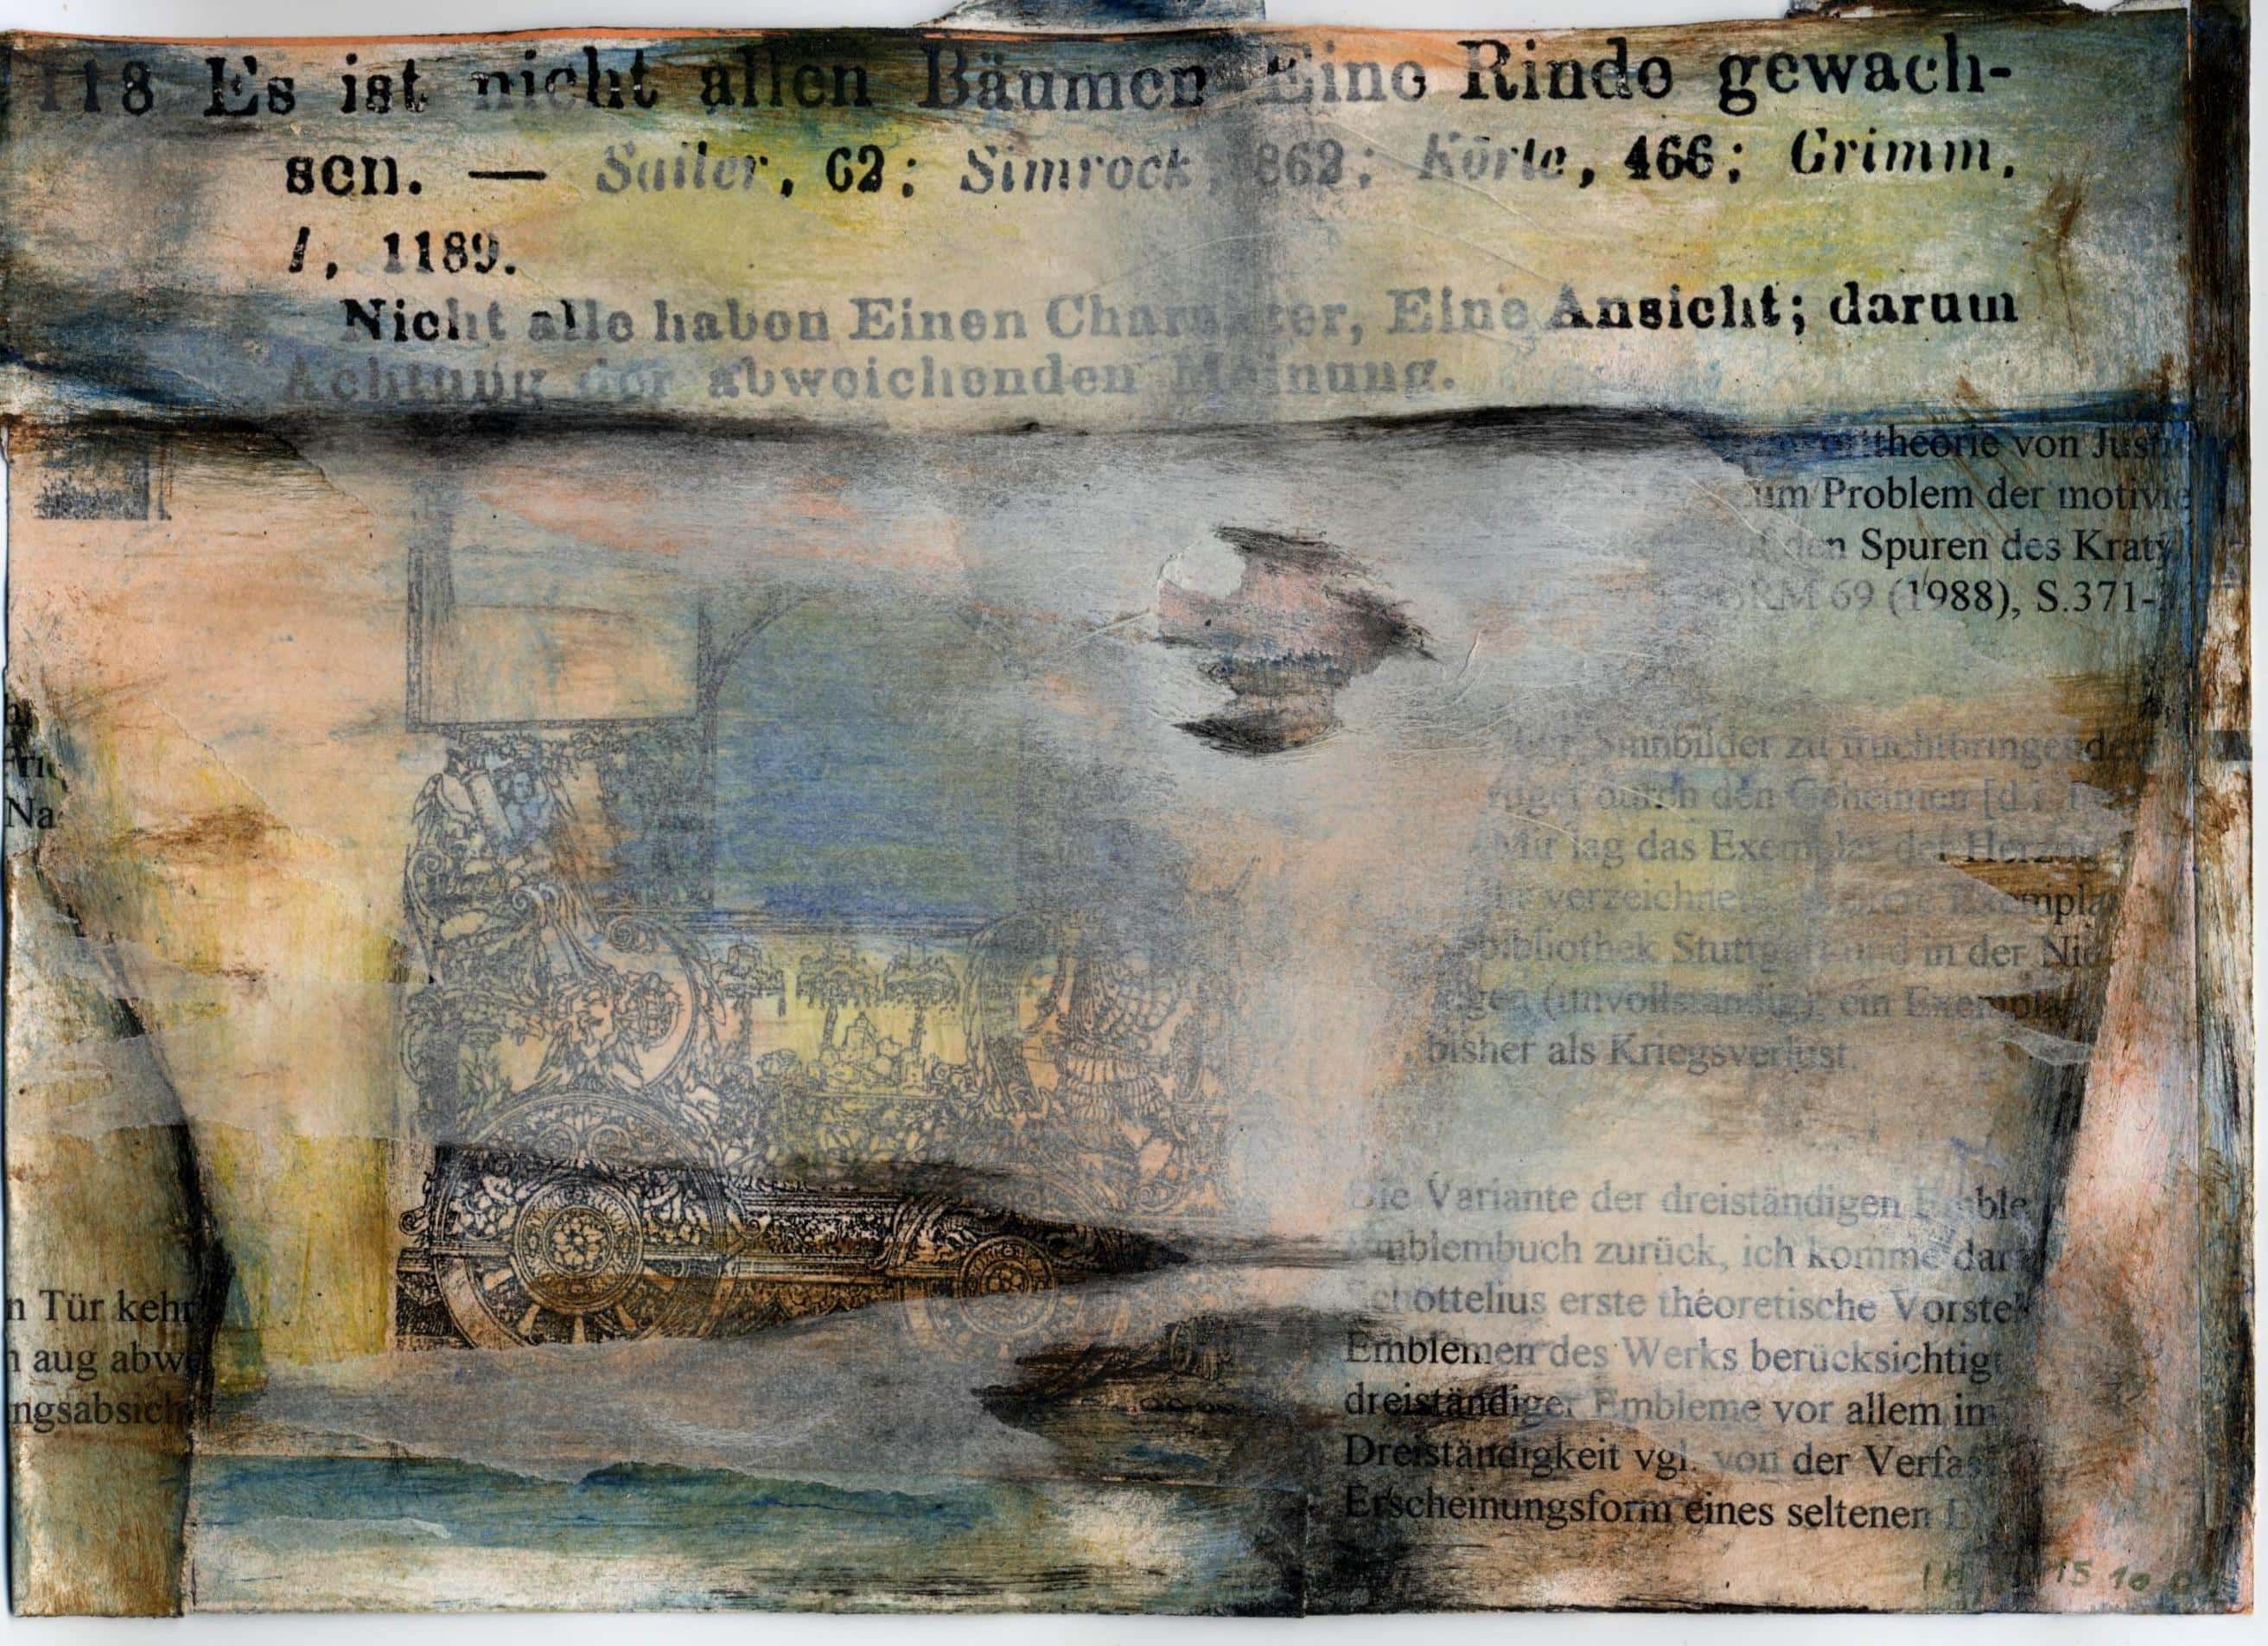 118 Es ist nicht allen Bäumen Eine Rinde gewach-
sen. — Sailer, 62; Simrock, 862; Körte, 466; Grimm,
I, 1189.
Nicht alle haben Einen Charakter, Eine Ansicht; darum
Achtung der abweichenden Meinung.
theorie von Just
um Problem der motivie
den Spuren des Kraty
GRM 69 (1988), S.371-
Sinnbilder zu fruchtbringende
durch den Geheimen [d.i.
Mir lag das Exemplar der Herzog
verzeichnet Exempla
bibliothek Stuttgart und in der Nie
gen (unvollständig), ein Exempla
bisher als Kriegsverlust.
Na
Die Variante der dreiständigen Emble
mblembuch zurück, ich komme dar
Schottelius erste theoretische Vorstel
Emblemen des Werks berücksichtigt
dreiständiger Embleme vor allem im
Dreiständigkeit vgl. von der Verfas
Erscheinungsform eines seltenen
n Tür kehr
n aug abwe
ngsabsich
15 10